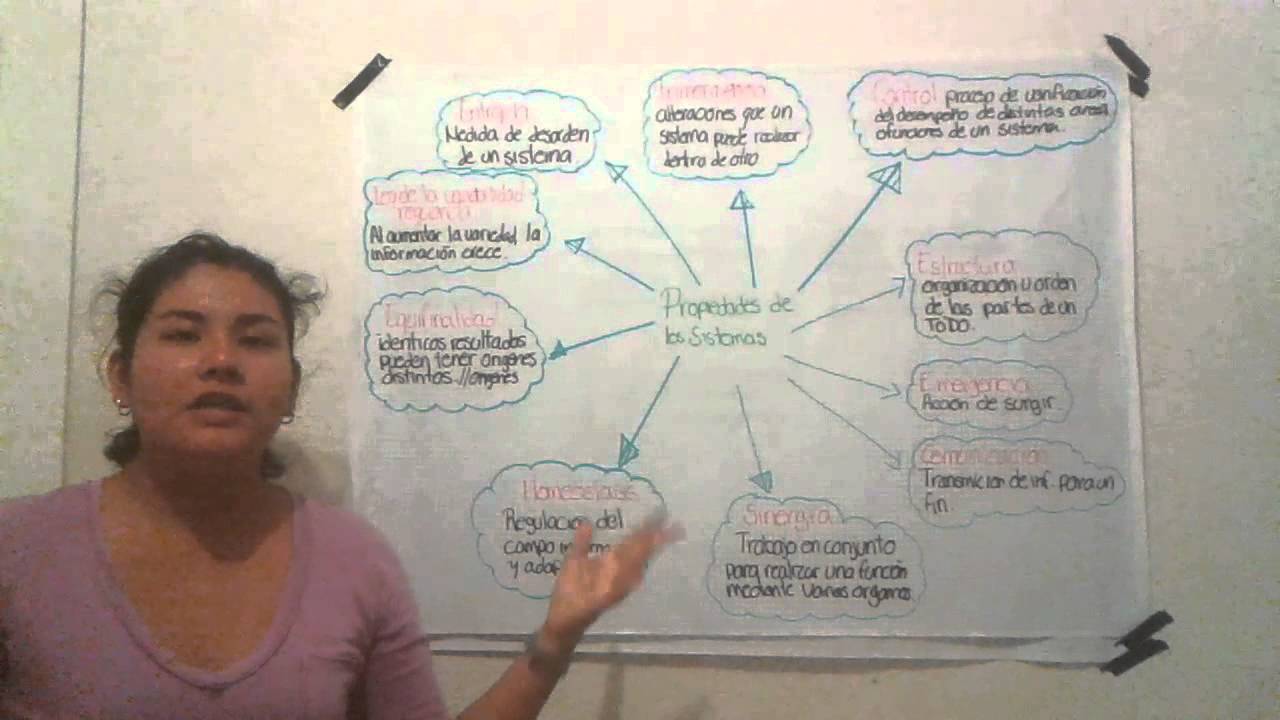 Propiedades de
los Sistemas
Entropia
Medida de desorden
de un sistema
alteraciones que un
sistema puede realizar
dentro de otro
Control proceso de verificación
del desempeño de distintas areas
o funciones de un sistema.
Ley de la
requerida
Al aumentar la variedad, la
información crece.
Equifinalidad
identicos resultados
pueden tener origenes
distintos //origenes
Estructura
organización u orden
de las partes de un
TODO.
Emergencia
Acción de surgir.
Comunicación
Transmicion de inf. para un
fin.
Sinergia
Trabajo en conjunto
para realizar una función
mediante varios organos.
Homeostasis
Regulacion del
campo
y